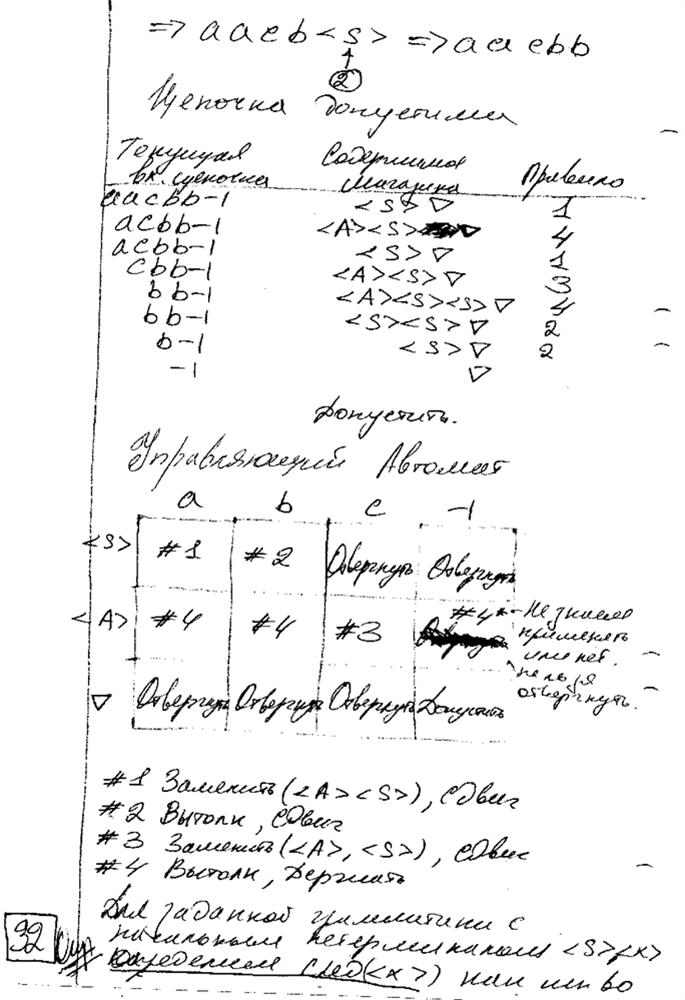 => a a c b <S> => a a c b b
↑
②
Цепочка допустима
Текущая вх. цепочка Содержимое магазина Правило
aacbb-| <S>▽ 1
acbb-| <A><S>▽ 4
acbb-| <S>▽ 1
cbb-| <A><S>▽ 3
bb-| <A><S><S>▽ 4
bb-| <S><S>▽ 2
b-| <S>▽ 2
-| ▽
Допустить.
Управляющий Автомат
a b c -|
<S> #1 #2 Отвергнуть Отвергнуть
<A> #4 #4 #3 #4*
Не знаем
применять
или нет.
нельзя
отвергнуть.
▽ Отвергнуть Отвергнуть Отвергнуть Допустить
#1 Заменить(<A><S>), сдвиг
#2 Вытолк, сдвиг
#3 Заменить(<A>,<S>), сдвиг
#4 Вытолк, Держать
32
Для заданной грамматики с
начальным нетерминалом <S> <x>
определяем след(<x>) как мн-во